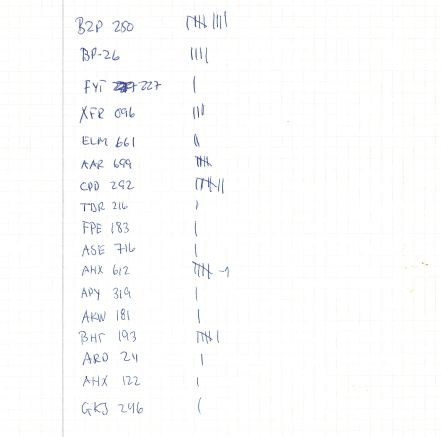 BZP 280 卌 ||||
BP-26 ||||
FYT 227 |
XFR 096 |||
ELM 661 ||
AAR 699 卌
CPD 292 卌 ||
TDR 216 |
FPE 183 |
ASE 716 |
AHX 612 卌 -1
APY 319 |
AKW 181 |
BHT 193 卌 |
ARO 24 |
AHX 122 |
GKJ 246 |